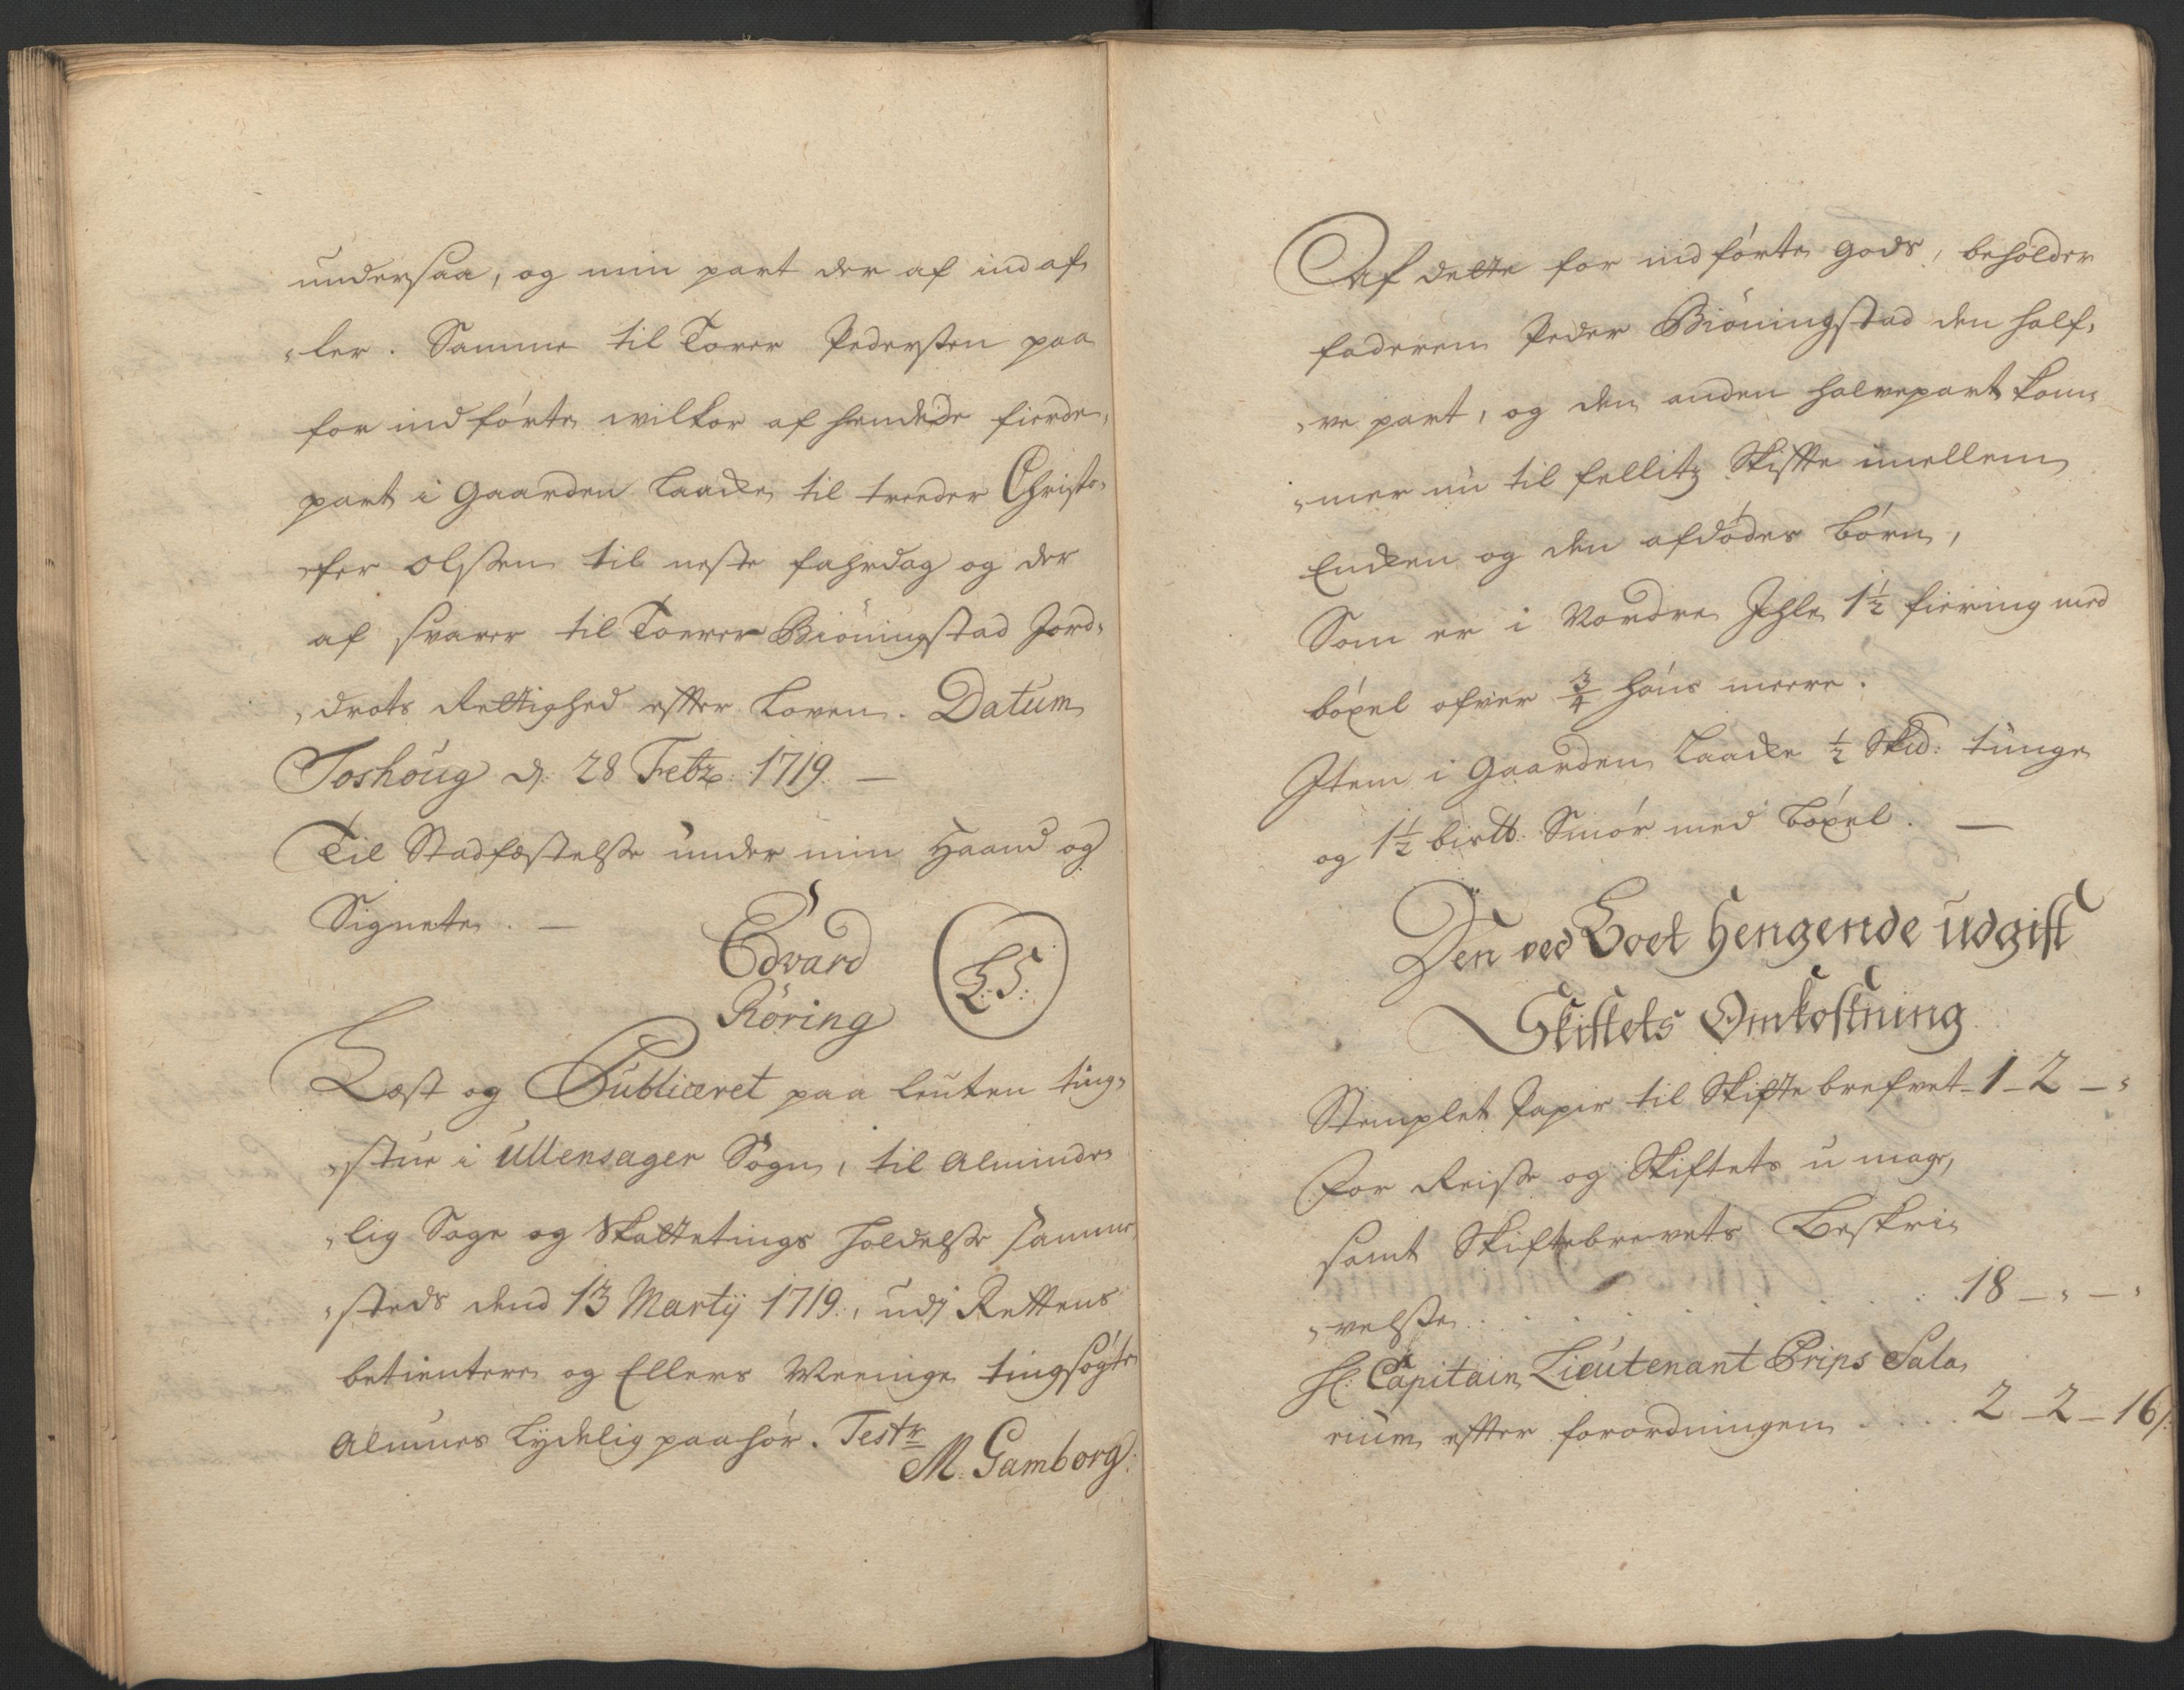 undersaa, og min part der af ind af,
„ler. Samme til Torer Pedersten paa
for ind förte wilkor af hendede fierde,
part i Gaarden Laache til treeder Christo,
„fer Olssen til neste fahrdag og der
af svarer til Toerer Biöningstad Jord,
„drots Rettighed effter Loven. Datum
Joshöug d. 28 Febr. 1719. —
Til Stadfæstelsse under min Haand og
Signete. —
Edvard
Röring
L: S:
Læst og Publiceret paa Leuten ting,
„stue i Ullensager Sogn, til Alminde,
„lig Sage og Skattetings Holdelsse samme
„steds dend 13 Martij 1719., udj Rettens
betientere og Ellers Meenige tingsögte
Almues Lydelig paahör. Testr
M. Gamborg.
Af dette for ind förte gods, beholder
faderen Peder Biöningstad den half,
„ve part, og den anden halvepart kom,
„mer nu til fellitz Skiffte imellem
Encken og den afdödes börn,
Som er i Nordre Ihle 1½ fiering med
böxel ofver ¾ Høns meere.
Item i Gaarden Laache ½ Skd: tunge
og 1½ bislb. Smör med böxel. —
Den ved Boet Hengende udgift
Skiftets Omkostning
Stemplet Papir til Skifte brefvet - 1 - 2 - „
For Reisse og Skiftets u mage,
samt Skiftebrevets Beskri,
„velsse . . . . . . . 18 - „ - „
Hr. Capitain Lieutenant Prips Sala,
rium effter forordningen . . . . 2 - 2 - 16 s.